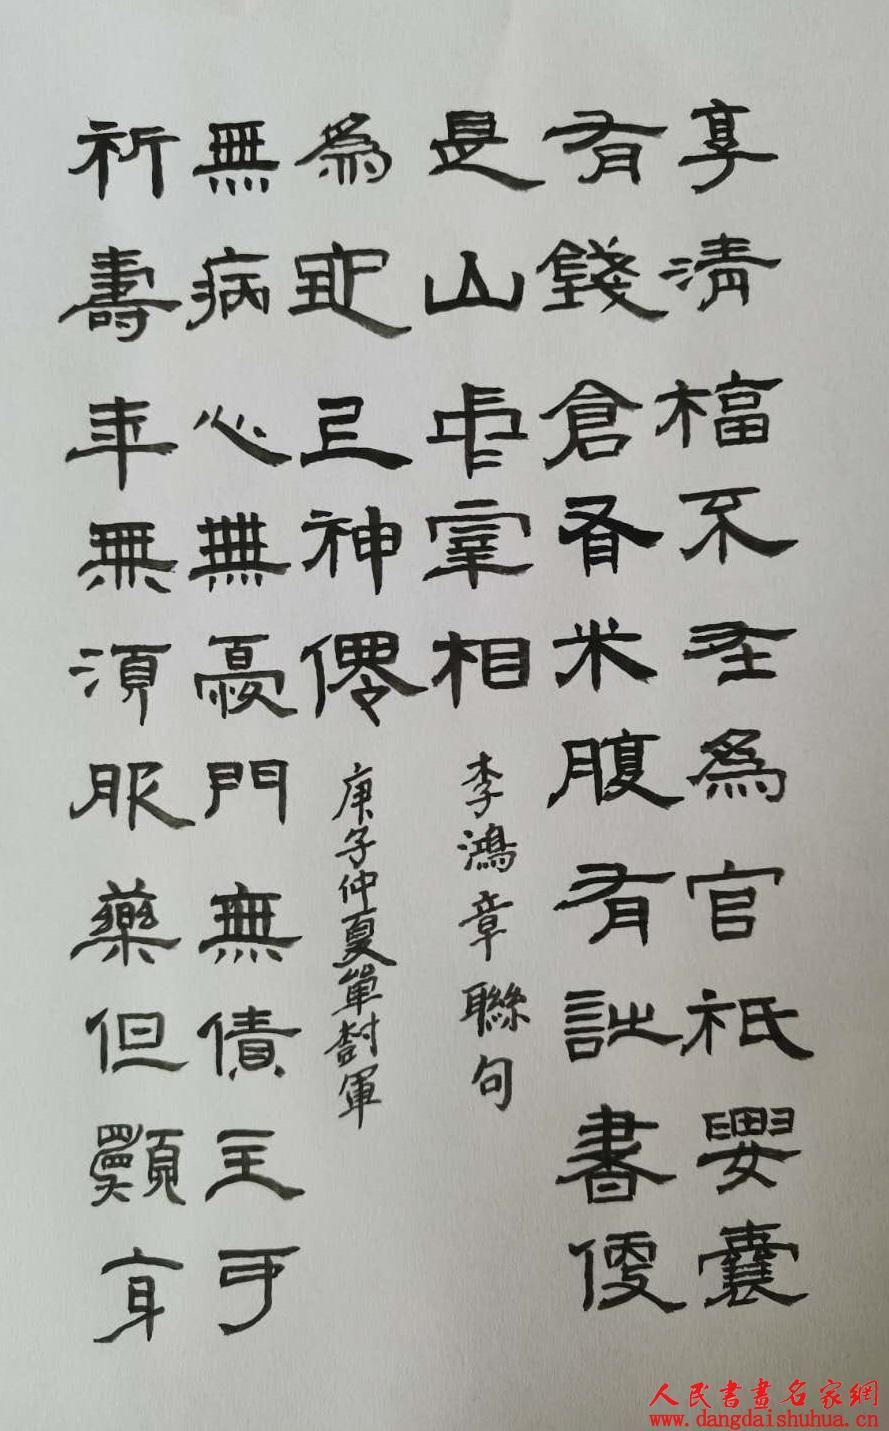 享清福不在為官祇要囊
有錢倉有米腹有詩書便
是山中宰相
李鴻章聯句
祈壽年無須服藥但願身
無病心無憂門無債主可
為地上神僊
庚子仲夏單軍
人民書畫名家網
www.dangdaishuhua.cn